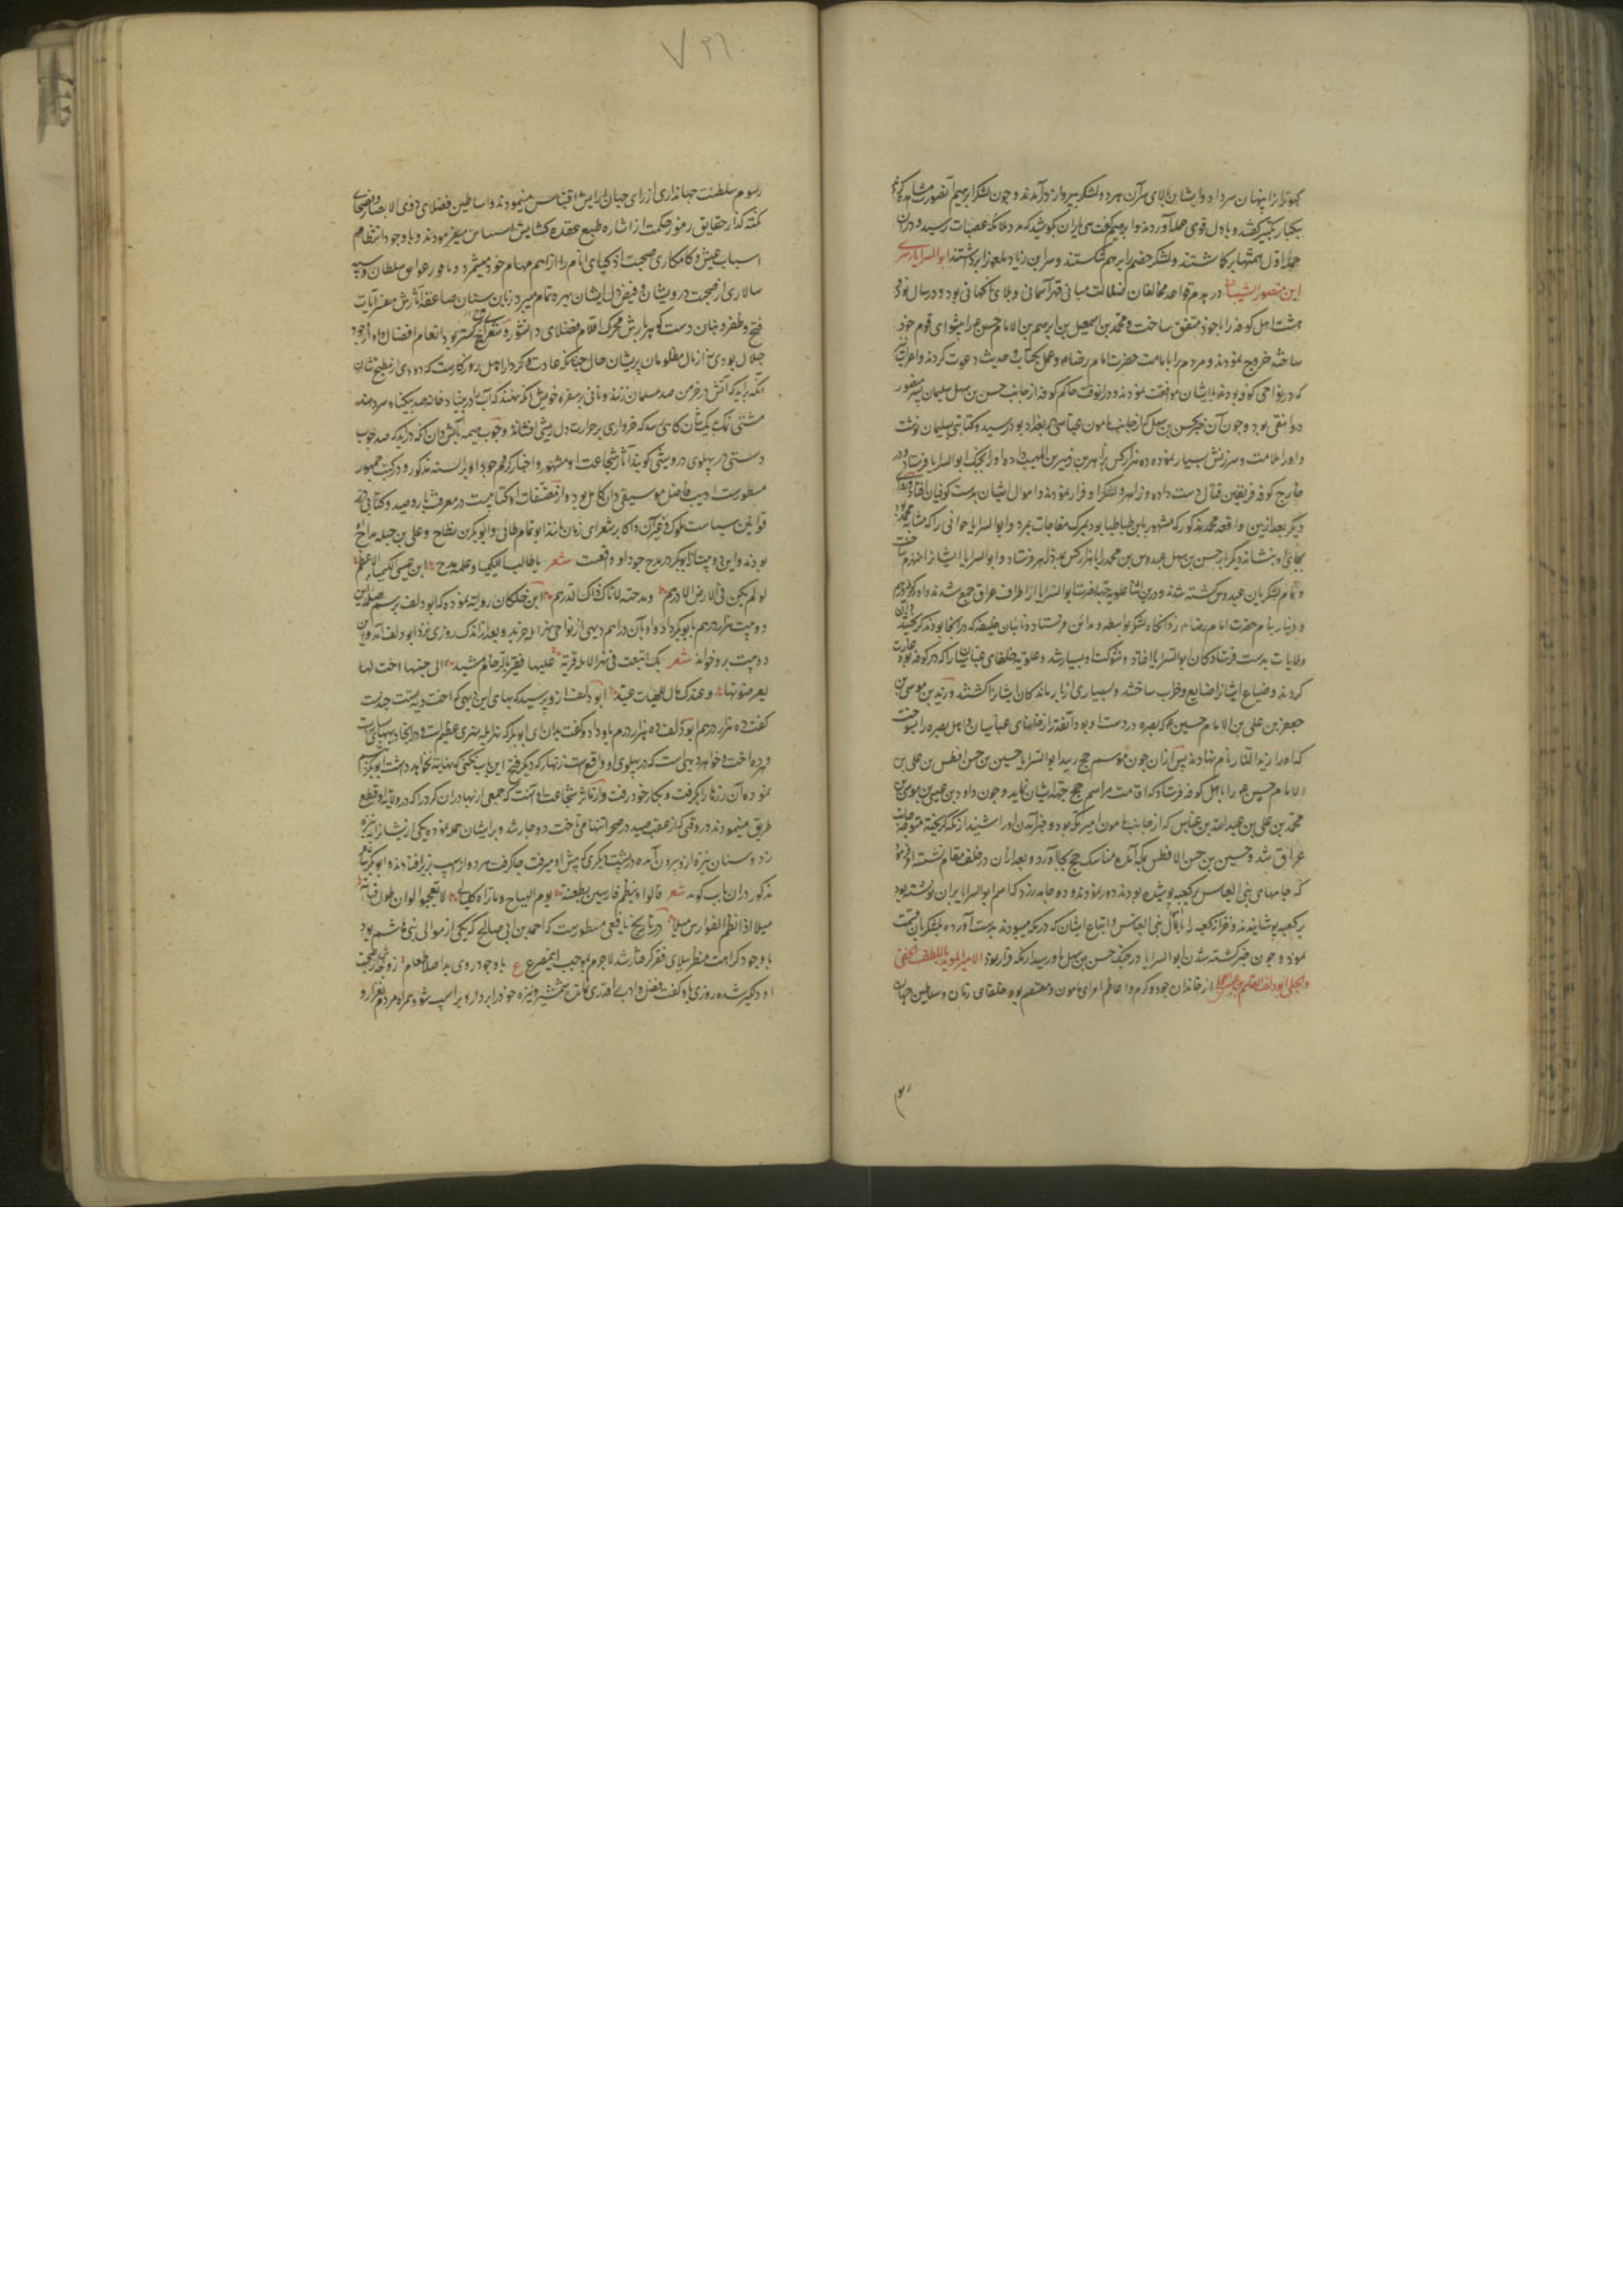 بیکبار تکبیر گفتند و بادل قوی حمله آوردند و ابرهیم گفت ای یاران بکوشید که مدد ملائکه رسید و در آن
حمله اول همتها بر کاشتند و لشکر خصم را برهم شکستند و سر ابن زیاد ملعون را برداشتند ابو السرایا سری
ابن منصور الشیبانی در هدم قواعد مخالفان ضلالت مبانی قهر آسمانی و بلای ناکهانی بود و در سال
هشت اهل کوفه را با خود متفق ساخت و محمد بن اسمعیل بن ابرهیم بن الامام حسن ع را پیشوای قوم خود
ساخته خروج نمودند و مردم را بامامت حضرت امام رضا و عمل بکتاب و حدیث دعوت کردند و اعراب
که در نواحی کوفه بودند با ایشان موافقت نمودند و در آنوقت حاکم کوفه از جانب حسن بن سهل سلیمان پسر منصور
دوانقی بود و چون آن خبر بحسن بن سهل که از جانب مامون عباسی در بغداد بود رسید کتابتی بسلیمان نوشت
و او را ملامت و سرزنش بسیار نموده ده هزار کس با زهیر بن المسیب داده او را بجنک ابو السرایا فرستاد و در
خارج کوفه فریقین قتال دست داده و زاهر و لشکر او فرار نمودند و اموال ایشان بدست کوفیان افتاد
دیگر بعد از این واقعه محمد مذکور که مشهور بابن طباطبا بود بمرک مفاجات بمرد و ابو السرایا جوانی را که
بجای او بنشاند دیگر بار حسن بن سهل عبدوس بن محمد را با هزار کس فرستاد و ابو السرایا ایشانرا منهزم ساخت
و تمام لشکریان عبدوس کشته شدند و در این اثنا علویه نزد ابو السرایا از اطراف عراق جمع شدند و او در کوفه درهم
و دینار بنام حضرت امام رضا زد آنکاه لشکر بواسطه و مداین فرستاد و نایبان خلیفه که در آنجا بودند
ولایات بدست فرستادکان ابو السرایا افتاد و شوکت او بسیار شد و علویه خانهای عباسیان را که در کوفه بود غارت
کردند و ضیاع ایشانرا ضایع و خراب ساختند و بسیاری از بازماندکان ایشانرا کشتند و زید بن موسی بن
جعفر بن علی بن الامام حسین ع که بصره در دست او بود آنقدر از خانهای عباسیان و اهل بصره را بسوخت
که او را زید النار نام نهادند پس از آن چون موسم حج رسید ابو السرایا حسین بن حسن افطس بن علی بن
الامام حسین ع را باهل کوفه فرستاد که اقامت مراسم حج جهت ایشان نماید و چون داود بن عیسی بن موسی بن
محمد بن علی بن عبد الله بن عباس که از جانب مامون امیر مکه بود و خبر آمدن او را شنید از مکه کریخته متوجه جانب
عراق شد و حسین بن حسن الافطس بمکه آمده مناسک حج بجا آورد و بعد از آن در خلف مقام نشسته امر نمود
که جامهای بنی العباس که بکعبه پوشیده بودند دور نمودند و دو جامه زرد که نام ابو السرایا بر آن نوشته بود
بر کعبه پوشانیدند و خزانه کعبه را با مال بنی العباس و اتباع ایشان که در مکه میبودند بدست آورده بلشکریان قسمت
نمود و چون خبر کشته شدن ابو السرایا در جنک حسن بن سهل باو رسید از مکه فرار نمود الامیر المؤید باللطف الخفی
والجلی ابو دلف القاسم بن عیسی العجلی از خاندان جود و کرم و اعاظم امرای مامون و معتصم بود و خلفای زمان و سلاطین جهان
۷۳۱
رسوم سلطنت و جهانداری از رای جهان آرایش اقتباس مینمودند و اساطین فضلای ذوی الابصار و فصحای
نکته گذار حقایق رموز حکمت از اشاره طبع عقده کشایش استیناس میفرمودند و با وجود انتظام
اسباب عیش و کامکاری صحبت اذکیای انام را از اهم مهام خود میشمرد و با وفور خواص سلطان و سپه
سالاری از صحبت درویشان و فیض دل ایشان بهره تمام میبرد زبان سنان صاعقه آثارش مفسر آیات
فتح و ظفر و بنان دست کوهر بارش محرک اقلام فضلای دانشور و شعرای سخن کستر بود انعام و افضال او از وجوه
حلال بودی نه از مال مظلومان پریشان حال چنانکه عادت و کردار اهل روزکارست که دودی از مطبخ شان
آنکه برآید که آتش در خرمن صد مسلمان زنند و نانی بر سفره خویش آنکه نهند که آب در بنیاد خانه صد بیکناه سر دهند
مشتی نمک بیک نان کاهی رسد که خرواری بر جراحت دل ریشی افشاند و چوب هیمه بآتش دان آنکه درآید که صد چوب
دستی در پهلوی درویشی کوبند آثار شجاعت او مشهور و اخبار کرم و جود او بر السنه مذکور و در کتب جمهور
مسطورست ادیب فاضل موسیقی دان کامل بود و از مصنفات او کتابیست در معرفت باز و صید و کتابی در
قوانین سیاست ملوک و غیر آن و اکابر شعرای زمان مانند ابو تمام طائی و ابو بکر بن نطاح و علی بن جبله مداح او
بودند و این دو بیت از ابو بکر در مدح جود او واقعست شعر یا طالبا للکیمیا و علمه مدح ابن عیسی الکیمیاء الاعظم
لو لم یکن فی الارض الا درهم و مدحته لاتاک ذاک الدرهم ابن خلکان روایت نموده که ابو دلف برسم صله این
دو بیت هزار درهم بابو بکر داد و او بآن دراهم دیهی از نواحی نهر ابله خرید و بعد از اندک روزی نزد ابو دلف آمد و این
دو بیت برو خواند شعر بک ابتعت فی نهر الابله قریة علیها قصیر بالرخام مشید الی جنبها اخت لها
یعرضونها و عندک مال للهبات عتید ابو دلف ازو پرسید که بهای این دیهی که اخت دیه تست چندست
گفت ده هزار درهم ابو دلف ده هزار درم باو داد و گفت بدان ای ابو بکر که نهر ابله نهری عظیم است و در آنجا دیهها بسیارست
و هر ده اخت و خواهر دیهی است که در پهلوی او واقع است زنهار که دیگر فتح این باب نکنی که نهایت نخواهد داشت ابو بکر تبسم
نموده آن زرها را بکرفت و بکار خود رفت و از مآثر شجاعت او آنست که جمعی از بهادران کرد را که در ولایت او قطع
طریق مینمودند در وقتی که از عقب صید در صحرا تنها می تاخت دوچار شد و بر ایشان حمله نموده یکی از ایشانرا نیزه
زد و سنان نیزه ازو بیرون آمده در پشت دیگری که پیش او میرفت جا کرفت هر دو از اسب بزیر افتادند و ابو بکر
مذکور در آن باب گوید شعر قالوا وینظم فارسین بطعنة یوم الهیاج وما تراه کلیلا لا تعجبوا لو ان طول قناته
میلا اذا نظم الفوارس میلا در تاریخ یافعی مسطورست که احمد بن ابی صالح که یکی از موالی بنی هاشم بود
با وجود کراهت منظر ببلای فقر گرفتار شد لاجرم بموجب این مصرع ع با وجود روی بد اصلا طعام زوجه از صحبت
او دلکیر شده روزی باو گفت فضل و ادب را قدری نمانده شمشیر و نیزه خود را بردار و بر اسب شو و همراه مردم بغزا رو